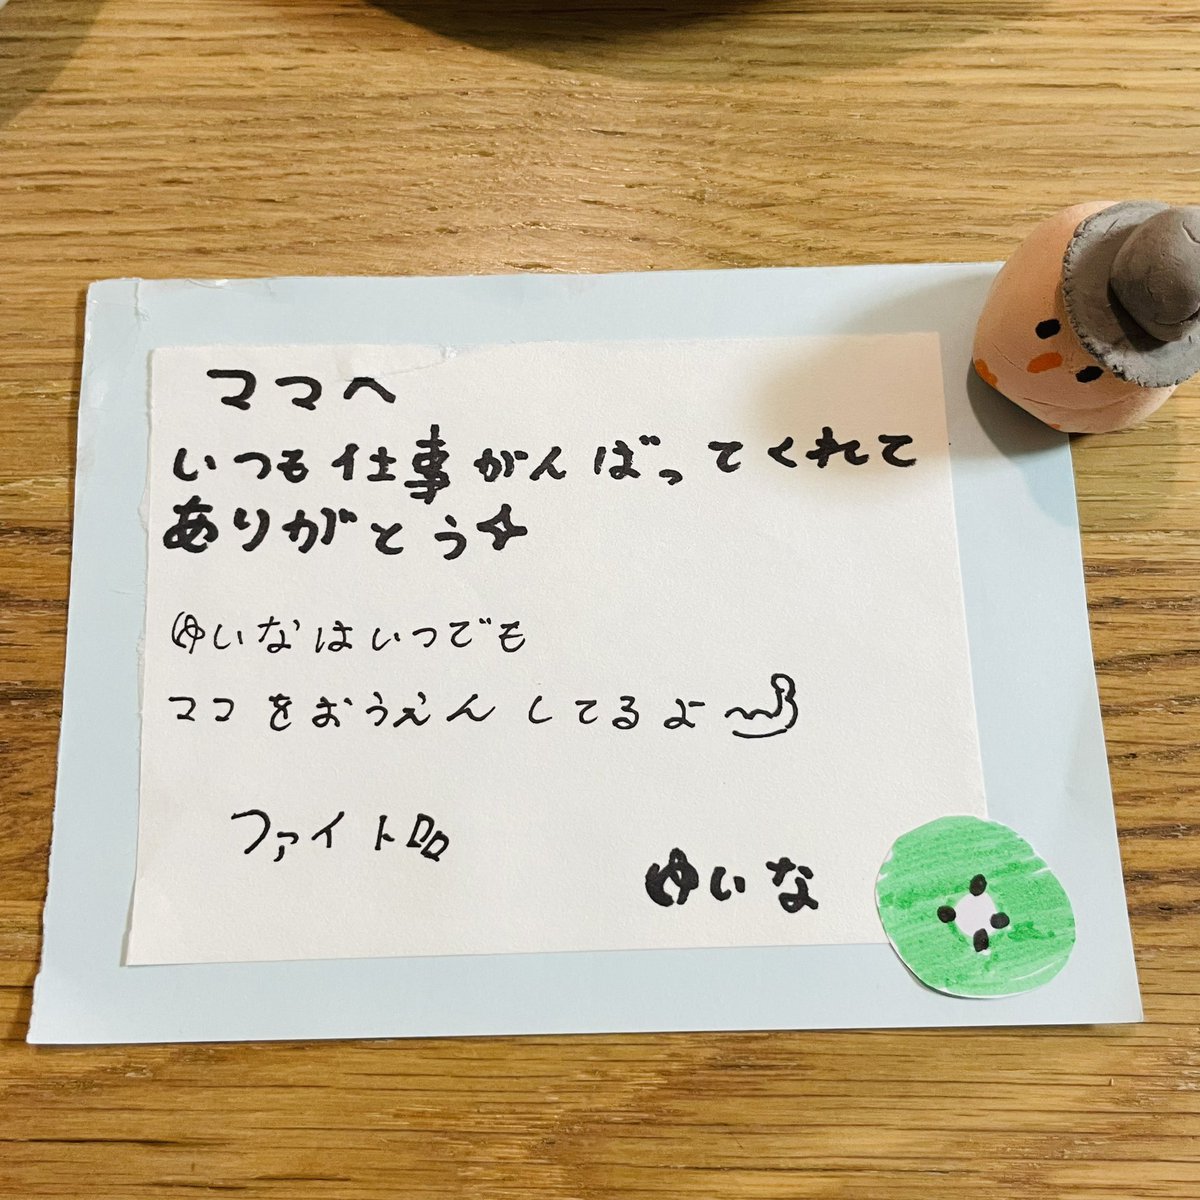 ママへ
いつも仕事がんばってくれて
ありがとう✧
ゆいなはいつでも
ママをおうえんしてるよ
ファイト!!
ゆいな